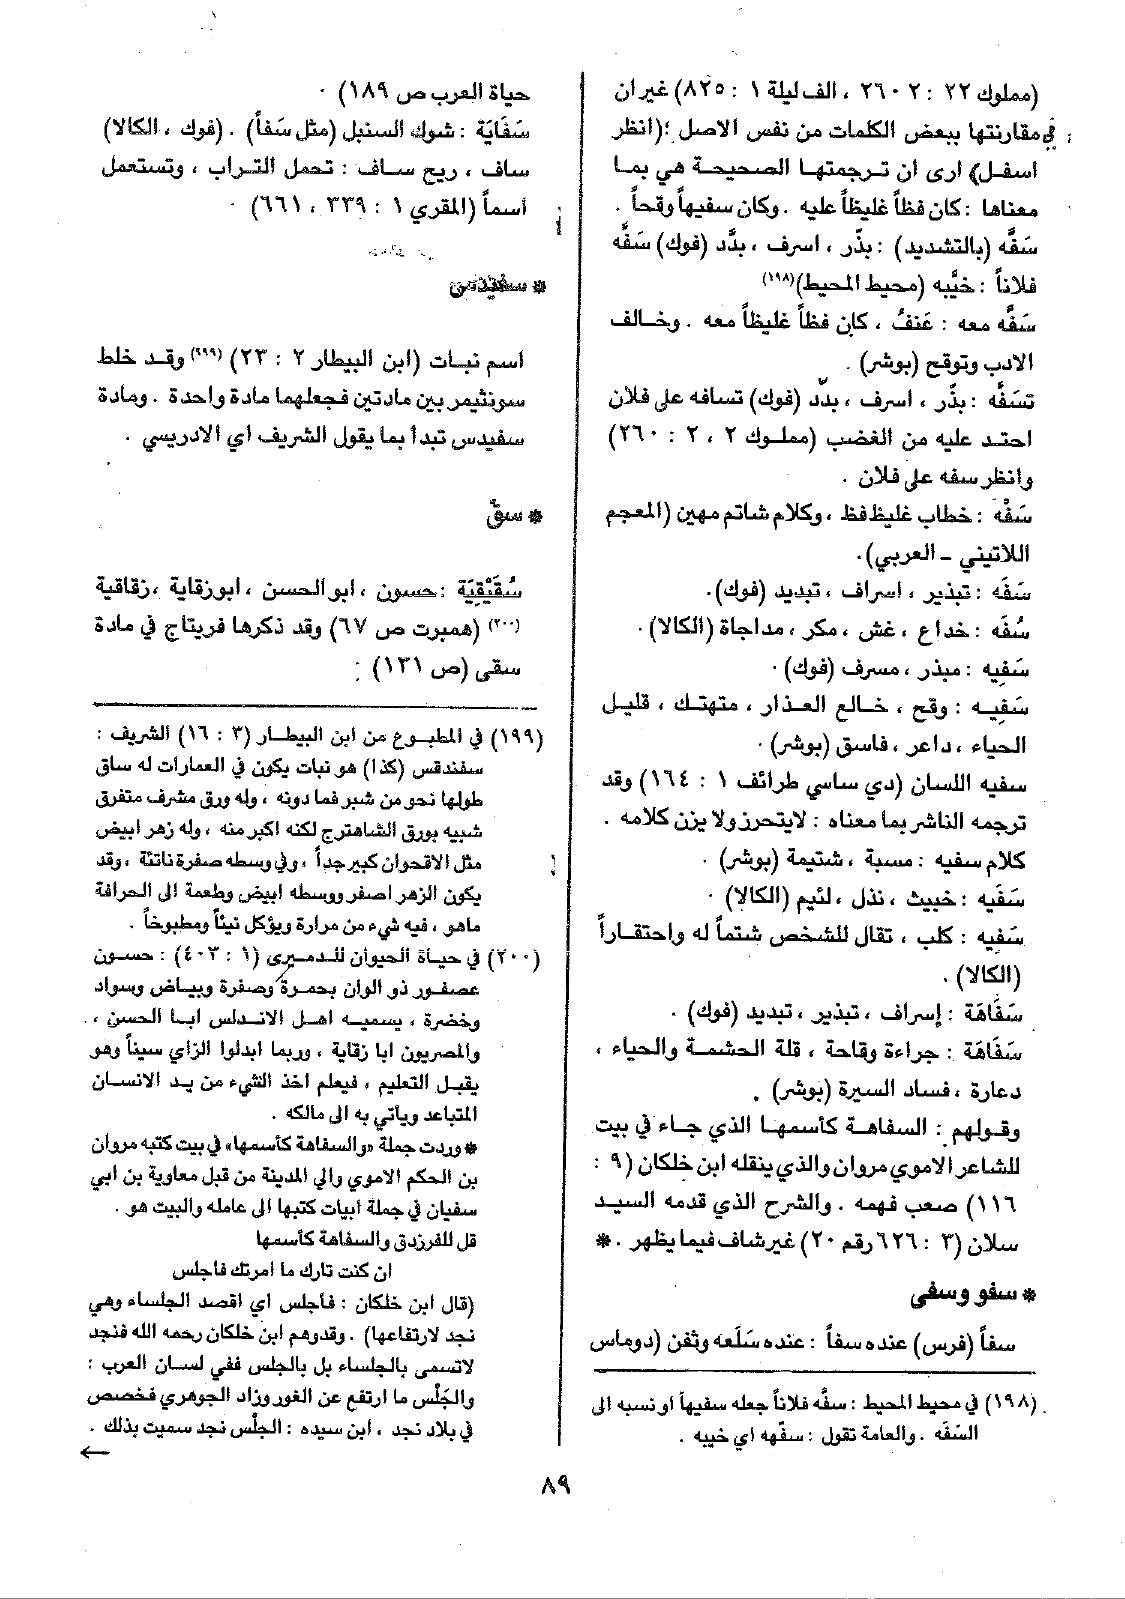 (مملوك ٢٢ : ٢ ٠ ٢٦ ، الف ليلة ١ : ٨٢٥) غير ان
في مقارنتها ببعض الكلمات من نفس الاصل (انظر
اسفل) ارى ان ترجمتها الصحيحة هي بما
معناها : كان فظاً غليظاً عليه . وكان سفيهاً وقحاً .
سَفَّه (بالتشديد) : بذّر ، اسرف ، بدَّد (فوك) سَفَّه
فلاناً : خيَّبه (محيط المحيط)(١٩٨)
سَفَّه معه : عَنفُ ، كان فظاً غليظاً معه . وخالف
الادب وتوقح (بوشر) .
تسَفَّه : بذّر ، اسرف ، بدّد (فوك) تسافه على فلان
احتد عليه من الغضب (مملوك ٢ ، ٢ : ٢٦٠)
وانظر سفه على فلان .
سَفْه : خطاب غليظ فظ ، وكلام شاتم مهين (المعجم
اللاتيني - العربي).
سَفَه : تبذير ، اسراف ، تبديد (فوك).
سُفَه : خداع ، غش ، مكر ، مداجاة (الكالا).
سَفِيه : مبذر ، مسرف (فوك) .
سَفِيه : وقح ، خالع العذار ، متهتك ، قليل
الحياء ، داعر ، فاسق (بوشر) .
سفيه اللسان (دي ساسي طرائف ١ : ١٦٤) وقد
ترجمه الناشر بما معناه : لا يتحرز ولا يزن كلامه .
كلام سفيه : مسبة ، شتيمة (بوشر) .
سَفَيه : خبيث ، نذل ، لئيم (الكالا) .
سَفِيه : كلب ، تقال للشخص شتماً له واحتقاراً
(الكالا) .
سَفَاهَة : إسراف ، تبذير ، تبديد (فوك) .
سَفَاهَة : جراءة وقاحة ، قلة الحشمة والحياء ،
دعارة ، فساد السيرة (بوشر) .
وقولهم : السفاهة كأسمها الذي جاء في بيت
للشاعر الاموي مروان والذي ينقله ابن خلكان (٩ :
١١٦) صعب فهمه . والشرح الذي قدمه السيد
سلان (٣ : ٦٢٦ رقم ٢٠) غير شاف فيما يظهر . *
* سفو وسفى
سفاً (فرس) عنده سفاً : عنده سَلَعه وثفن (دوماس
(١٩٨) في محيط المحيط : سفَّه فلاناً جعله سفيهاً او نسبه الى
السَفَه . والعامة تقول : سفّهه اي خيبه .
حياة العرب ص ١٨٩) .
سَفَايَة : شوك السنبل (مثل سَفاً) . (فوك ، الكالا)
ساف ، ريح ساف : تحمل التراب ، وتستعمل
أسماً (المقري ١ : ٣٣٩ ، ٦٦١) .
اسم نبات (ابن البيطار ٢ : ٢٣)(١٩٩) وقد خلط
سونثيمر بين مادتين فجعلهما مادة واحدة . ومادة
سفيدس تبدأ بما يقول الشريف أي الادريسي .
* سقّ
سُقَيْقِيَة : حسون ، ابو الحسن ، ابو زقاية ، زقاقية
(٢٠٠) (همبرت ص ٦٧) وقد ذكرها فريتاج في مادة
سقى (ص ١٣١) .
(١٩٩) في المطبوع من ابن البيطار (٣ : ١٦) الشريف :
سفندقس (كذا) هو نبات يكون في العمارات له ساق
طولها نحو من شبر فما دونه ، وله ورق مشرف متفرق
شبيه بورق الشاهترج لكنه اكبر منه ، وله زهر ابيض
مثل الاقحوان كبير جداً ، وفي وسطه صفرة ناتئة ، وقد
يكون الزهر اصفر ووسطه ابيض وطعمة الى الحرافة
ماهو ، فيه شيء من مرارة ويؤكل نيئاً ومطبوخاً .
(٢٠٠) في حياة الحيوان للدميري (١ : ٤٠٣) : حسون
عصفور ذو الوان بحمرة وصفرة وبياض وسواد
وخضرة ، يسميه اهل الاندلس ابا الحسن ، .
والمصريون ابا زقاية ، وربما ابدلوا الزاي سيناً وهو
يقبل التعليم ، فيعلم اخذ الشيء من يد الانسان
المتباعد ويأتي به الى مالكه .
* وردت جملة «والسفاهة كأسمها» في بيت كتبه مروان
بن الحكم الاموي والي المدينة من قبل معاوية بن ابي
سفيان في جملة أبيات كتبها الى عامله والبيت هو .
قل للفرزدق والسفاهة كأسمها
ان كنت تارك ما امرتك فأجلس
(قال ابن خلكان : فأجلس أي اقصد الجلساء وهي
نجد لارتفاعها) . وقد وهم ابن خلكان رحمه الله فنجد
لا تسمى بالجلساء بل بالجلس ففي لسان العرب :
والجَلْس ما ارتفع عن الغور وزاد الجوهري فخصص
في بلاد نجد ، ابن سيده : الجلْس نجد سميت بذلك .
←
٨٩